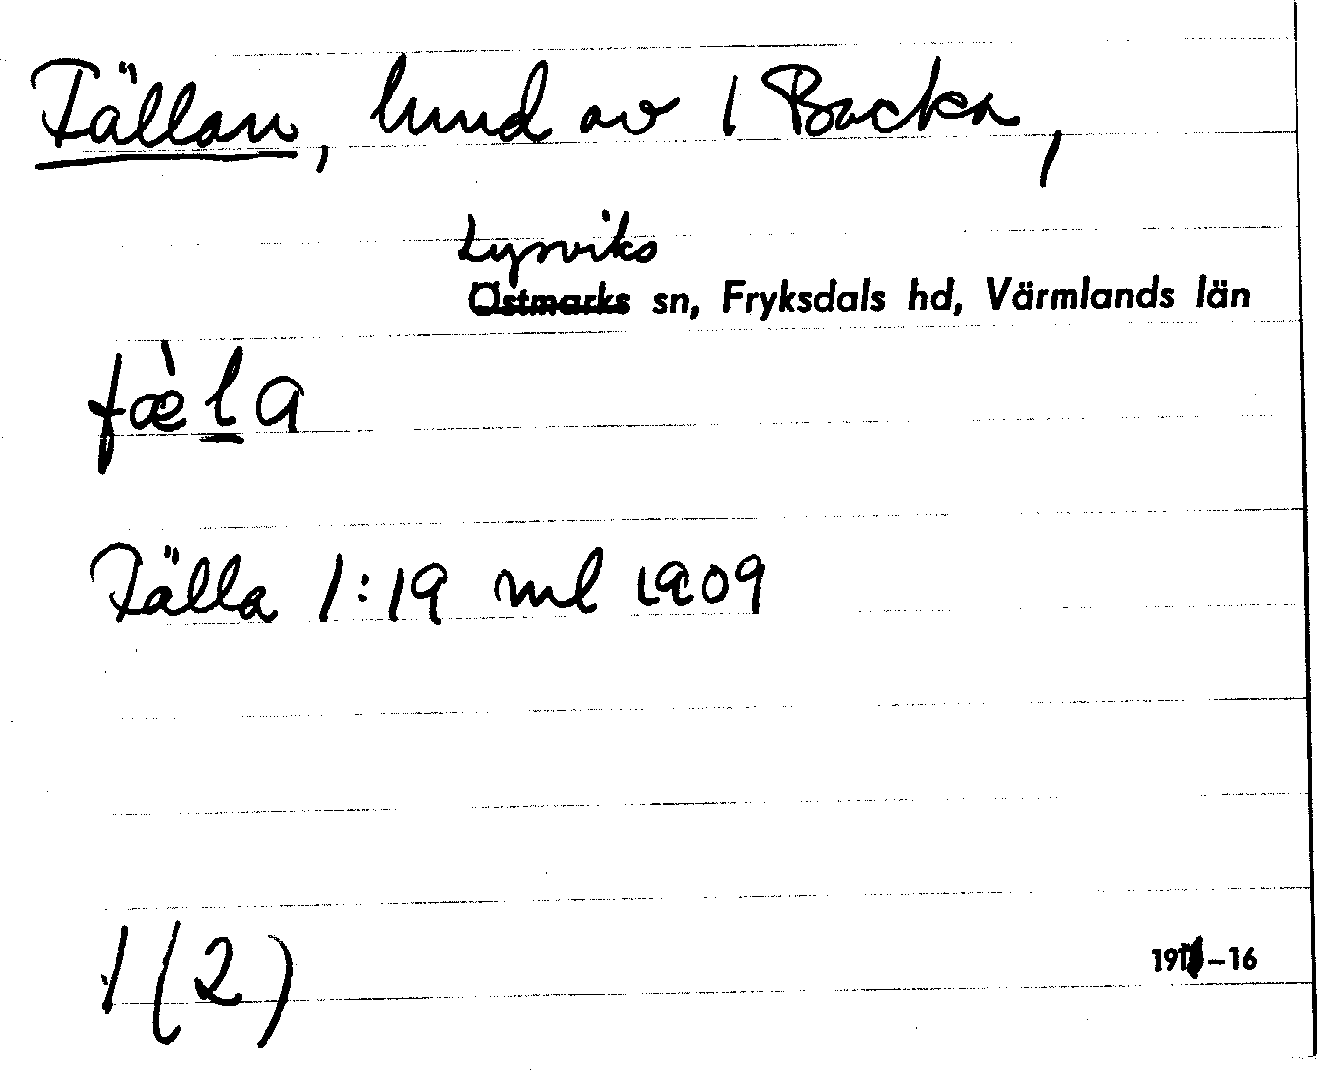 Fällan, hmd av 1 Backa,
Lysviks
Östmarks sn, Fryksdals hd, Värmlands län
fæ̀la
Fälla 1:19 ml 1909
1 (2)
-16